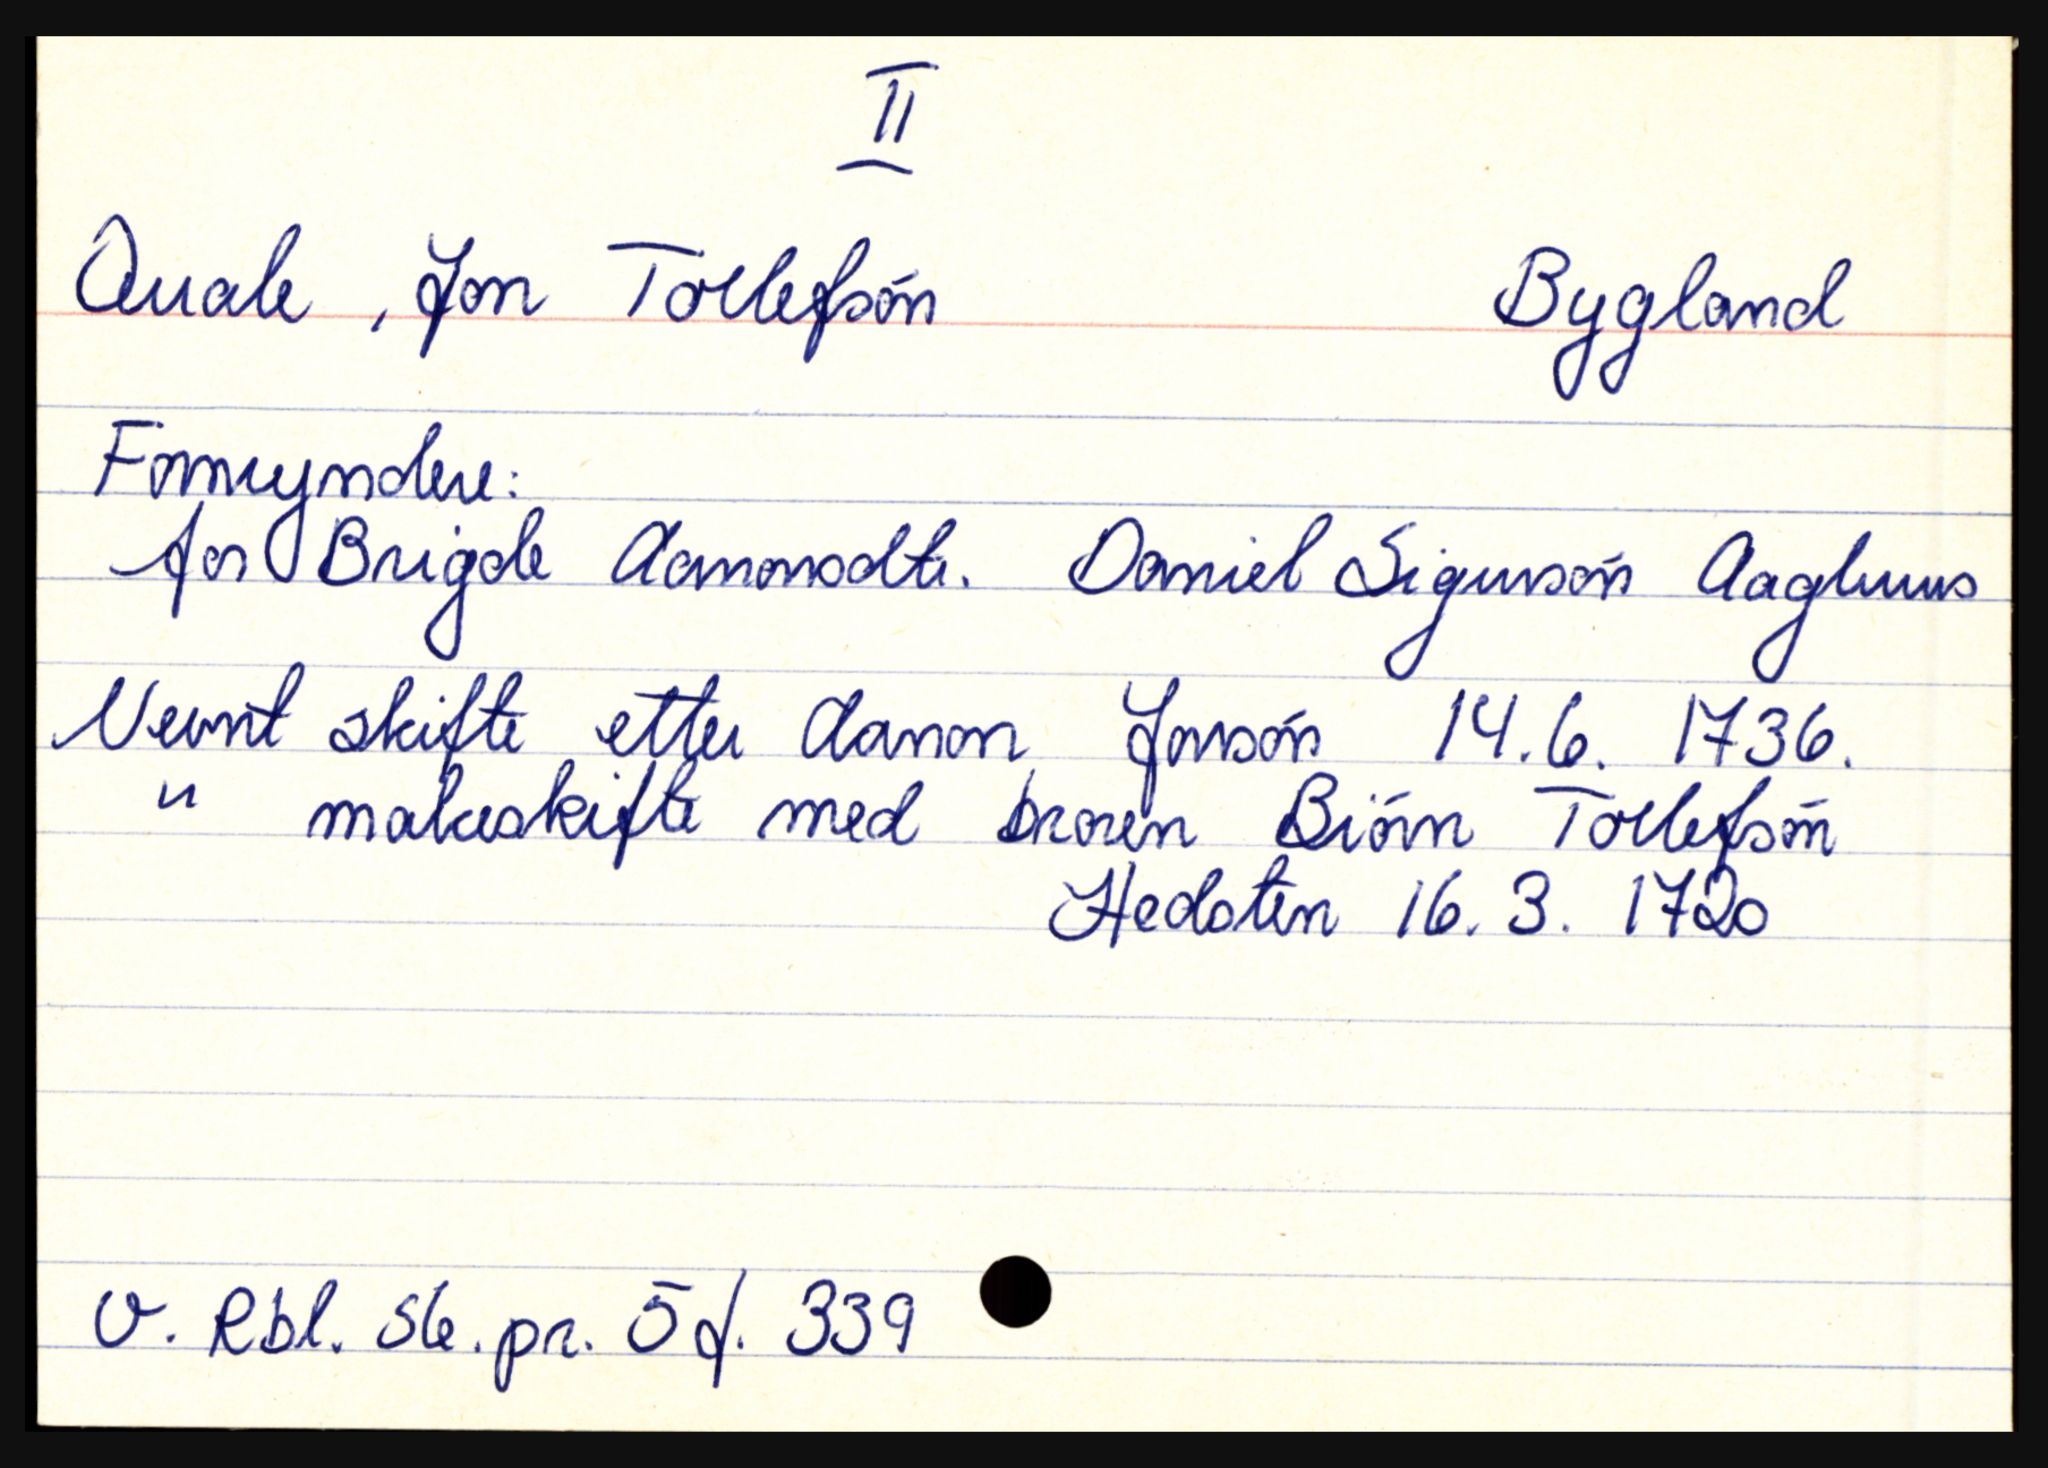 II
Quale, Jon Tollefsón Bygland
Formyndere:
for Brigde Aanonsdtr. Daniel Sigursón Aagluus
Nevnt skifte etter Aanon Jonsón 14.6. 1736.
" makeskifte med broren Biórn Tollefsón
Hedsten 16. 3. 1720
V. Rbl. Sk. pr. 5 f. 339